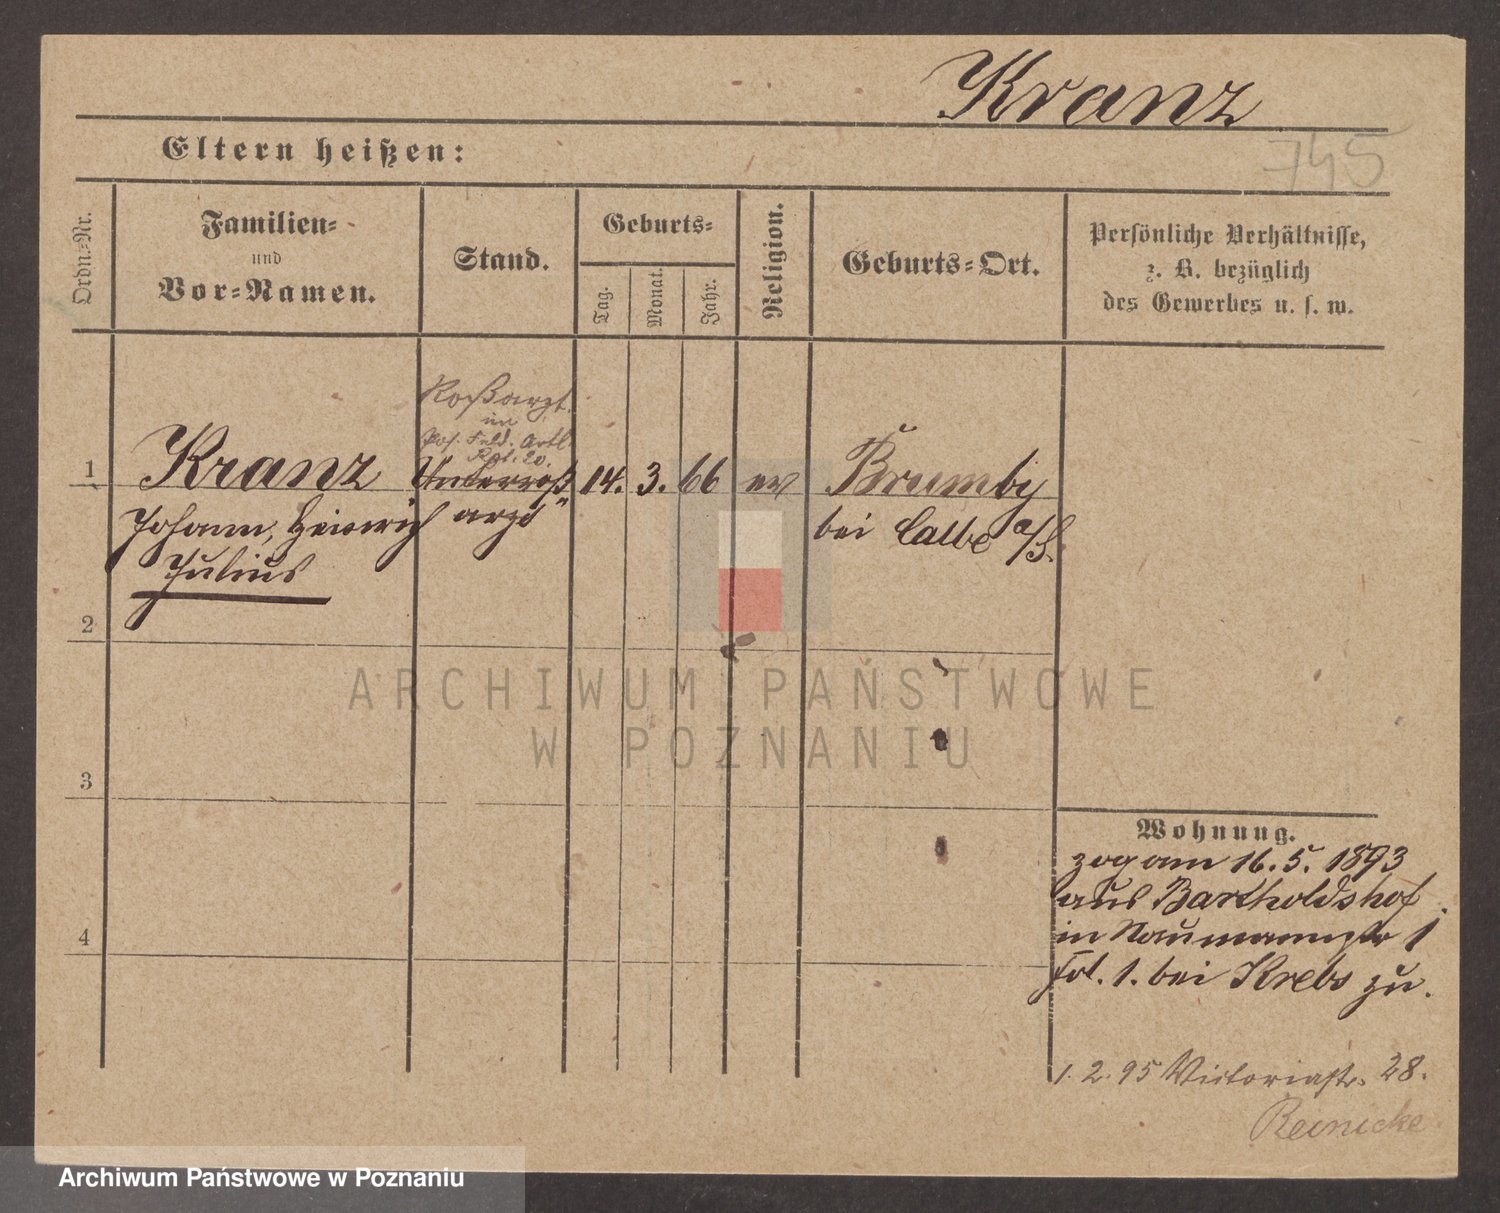 Kranz
745
Eltern heißen:
Ordn.=Nr.
Familien=
und
Vor=Namen.
Stand.
Geburts=
Tag.
Monat.
Jahr.
Religion.
Geburts=Ort.
Persönliche Verhältnisse,
z. B. bezüglich
des Gewerbes u. s. w.
Roßarzt
im
Pos. Feld. Artl.
Rgt. 20.
1 Kranz Unterroß= 14. 3. 66 ev Brumby
Johann, Heinrich arzt bei Calbe a/S.
Julius
2
3
4
ARCHIWUM PAŃSTWOWE
W POZNANIU
Wohnung.
zog am 16. 5. 1893
aus Bartholdshof
in Naumannstr 1
bei Krebs zu.
1. 2. 95 Victoriastr. 28.
Reinicke
Archiwum Państwowe w Poznaniu